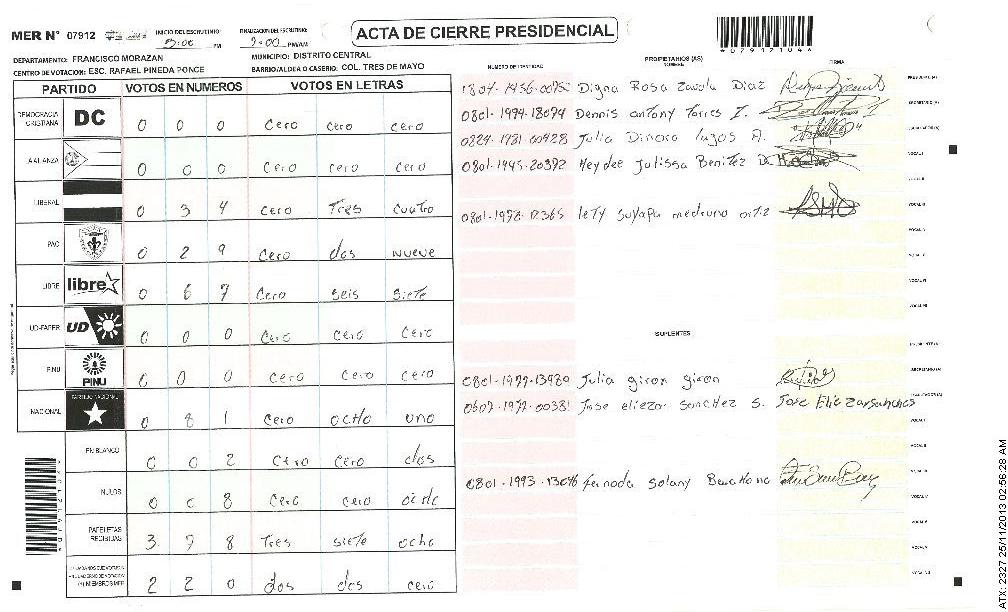 MER N° 07912 INICIO DEL ESCRUTINIO: 5:00 PM FINALIZACION DEL ESCRUTINIO: 7:00 PM/AM
ACTA DE CIERRE PRESIDENCIAL
*07912104*
DEPARTAMENTO: FRANCISCO MORAZAN MUNICIPIO: DISTRITO CENTRAL
CENTRO DE VOTACION: ESC. RAFAEL PINEDA PONCE BARRIO/ALDEA O CASERIO: COL. TRES DE MAYO
PARTIDO VOTOS EN NUMEROS VOTOS EN LETRAS
DEMOCRACIA CRISTIANA DC 0 0 0 cero cero cero
ALIANZA 0 0 0 cero cero cero
LIBERAL 0 3 4 cero Tres cuatro
PAC 0 2 9 cero dos nueve
LIBRE libre 0 6 7 cero seis siete
UD-FAPER UD 0 0 0 cero cero cero
PINU PINU 0 0 0 cero cero cero
NACIONAL PARTIDO NACIONAL 0 8 1 cero ocho uno
EN BLANCO 0 0 2 cero cero dos
NULOS 0 0 8 cero cero ocho
PAPELETAS RECIBIDAS 3 7 8 Tres siete ocho
2 2 0 dos dos cero
NUMERO DE IDENTIDAD PROPIETARIOS (AS) NOMBRE FIRMA
Digna Rosa Zavala Diaz PRESIDENTE (A)
0801-1974-18074 Dennis antony Torres Z. SECRETARIO (A)
0824-1981-00928 Julia Dinora lagos A.
0801-1945-20392 Heydee Julissa Benitez VOCAL I
VOCAL II
0801-1978-12365 lety suyapa medrano ortiz VOCAL III
VOCAL IV
VOCAL V
VOCAL VI
VOCAL VII
SUPLENTES
0801-1979-13980 Julia giron giron SECRETARIO (A)
0607-1972-00381 Jose eliezar sanchez S. Jose Eliezar Sanchez
VOCAL I
VOCAL II
VOCAL III
VOCAL IV
VOCAL V
VOCAL VI
VOCAL VII
ATX: 2327 25/11/2013 02:56:28 AM